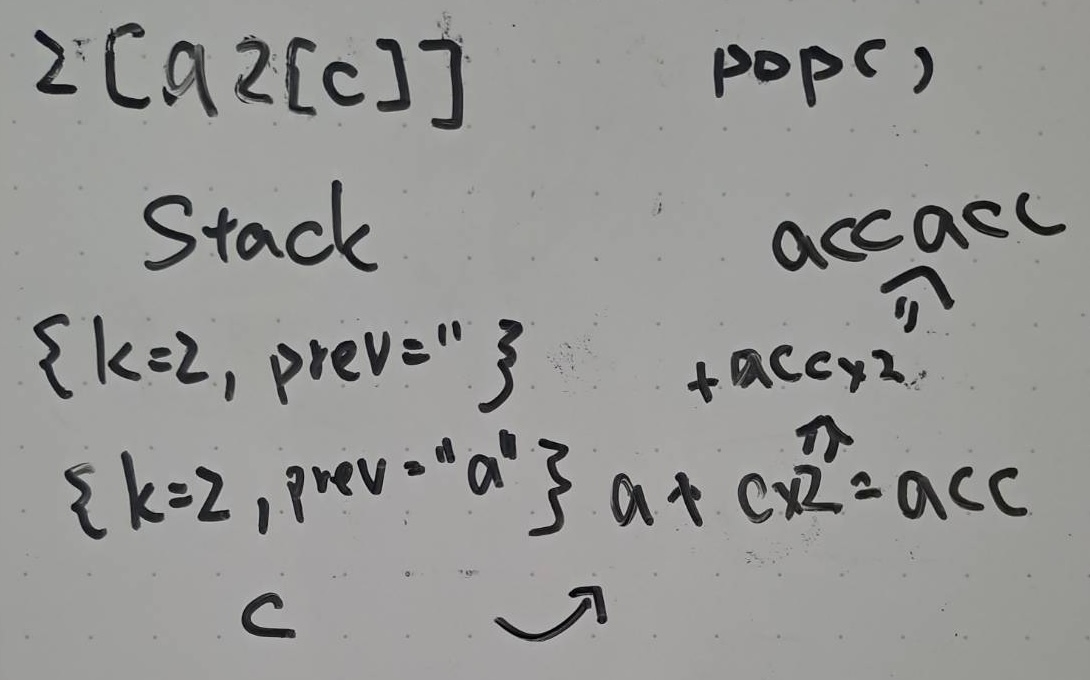 2[a2[c]] pop()
Stack
accacc
{k=2, prev=" }
+accx2
{k=2, prev="a"} a+ cx2=acc
c